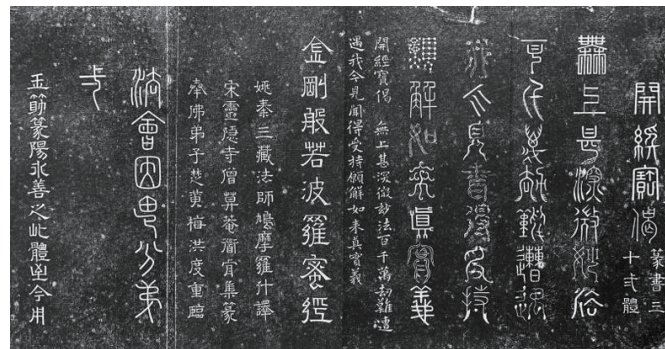 開經寶偈
篆書三
十弍體
無上甚深微妙法
百千萬劫難遭遇
我今見聞得受持
願解如來真實義
開經寶偈 無上甚深微妙法百千萬劫難遭
遇我今見聞得受持願解如來真實義
金剛般若波羅蜜經
姚秦三藏法師鳩摩羅什譯
宋靈隱寺僧莫菴道肯集篆
奉佛弟子楚黄梅洪度重臨
法會因由分第
弌
玉筯篆陽冰善之此體至今用